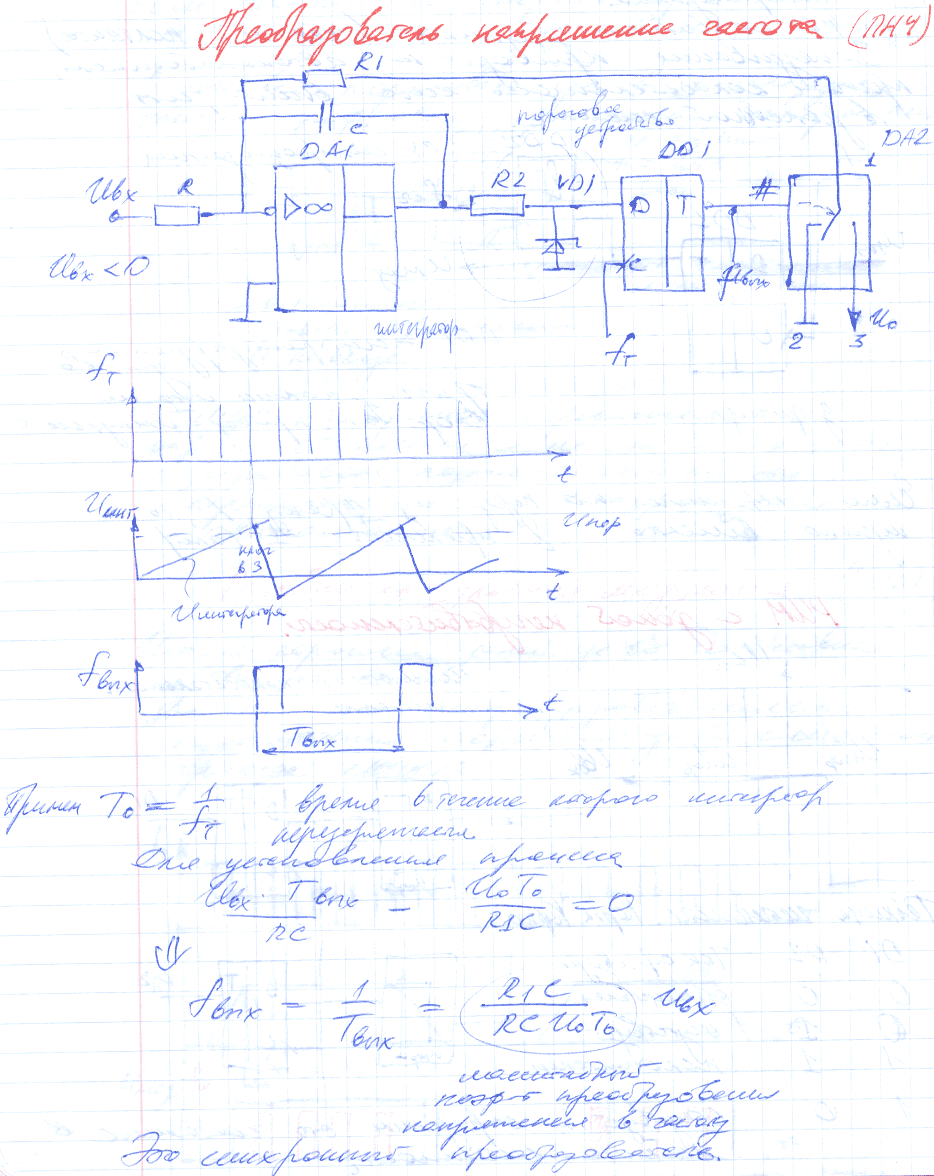 Преобразователь напряжение частота (ПНЧ)
R1
C
пороговое
устройство
DA1
DD1
DA2
1
Uвх
R
▷∞
R2
VD1
D
T
#
C
Uвх < 0
fвых
интегратор
fт
2
3
U0
fт
t
Uинт
Uпор
ключ
в 3
t
Uинтегратора
fвых
t
Tвых
Примем T0 = 1/fт время в течение которого интегратор
перезаряжается
Для установления процесса
Uвх · Tвых / RC − U0T0 / R1C = 0
⇓
fвых = 1/Tвых = R1C / RC U0T0 Uвх
масштабный
коэф-т преобразования
напряжения в частоту
Это синхронный преобразователь.